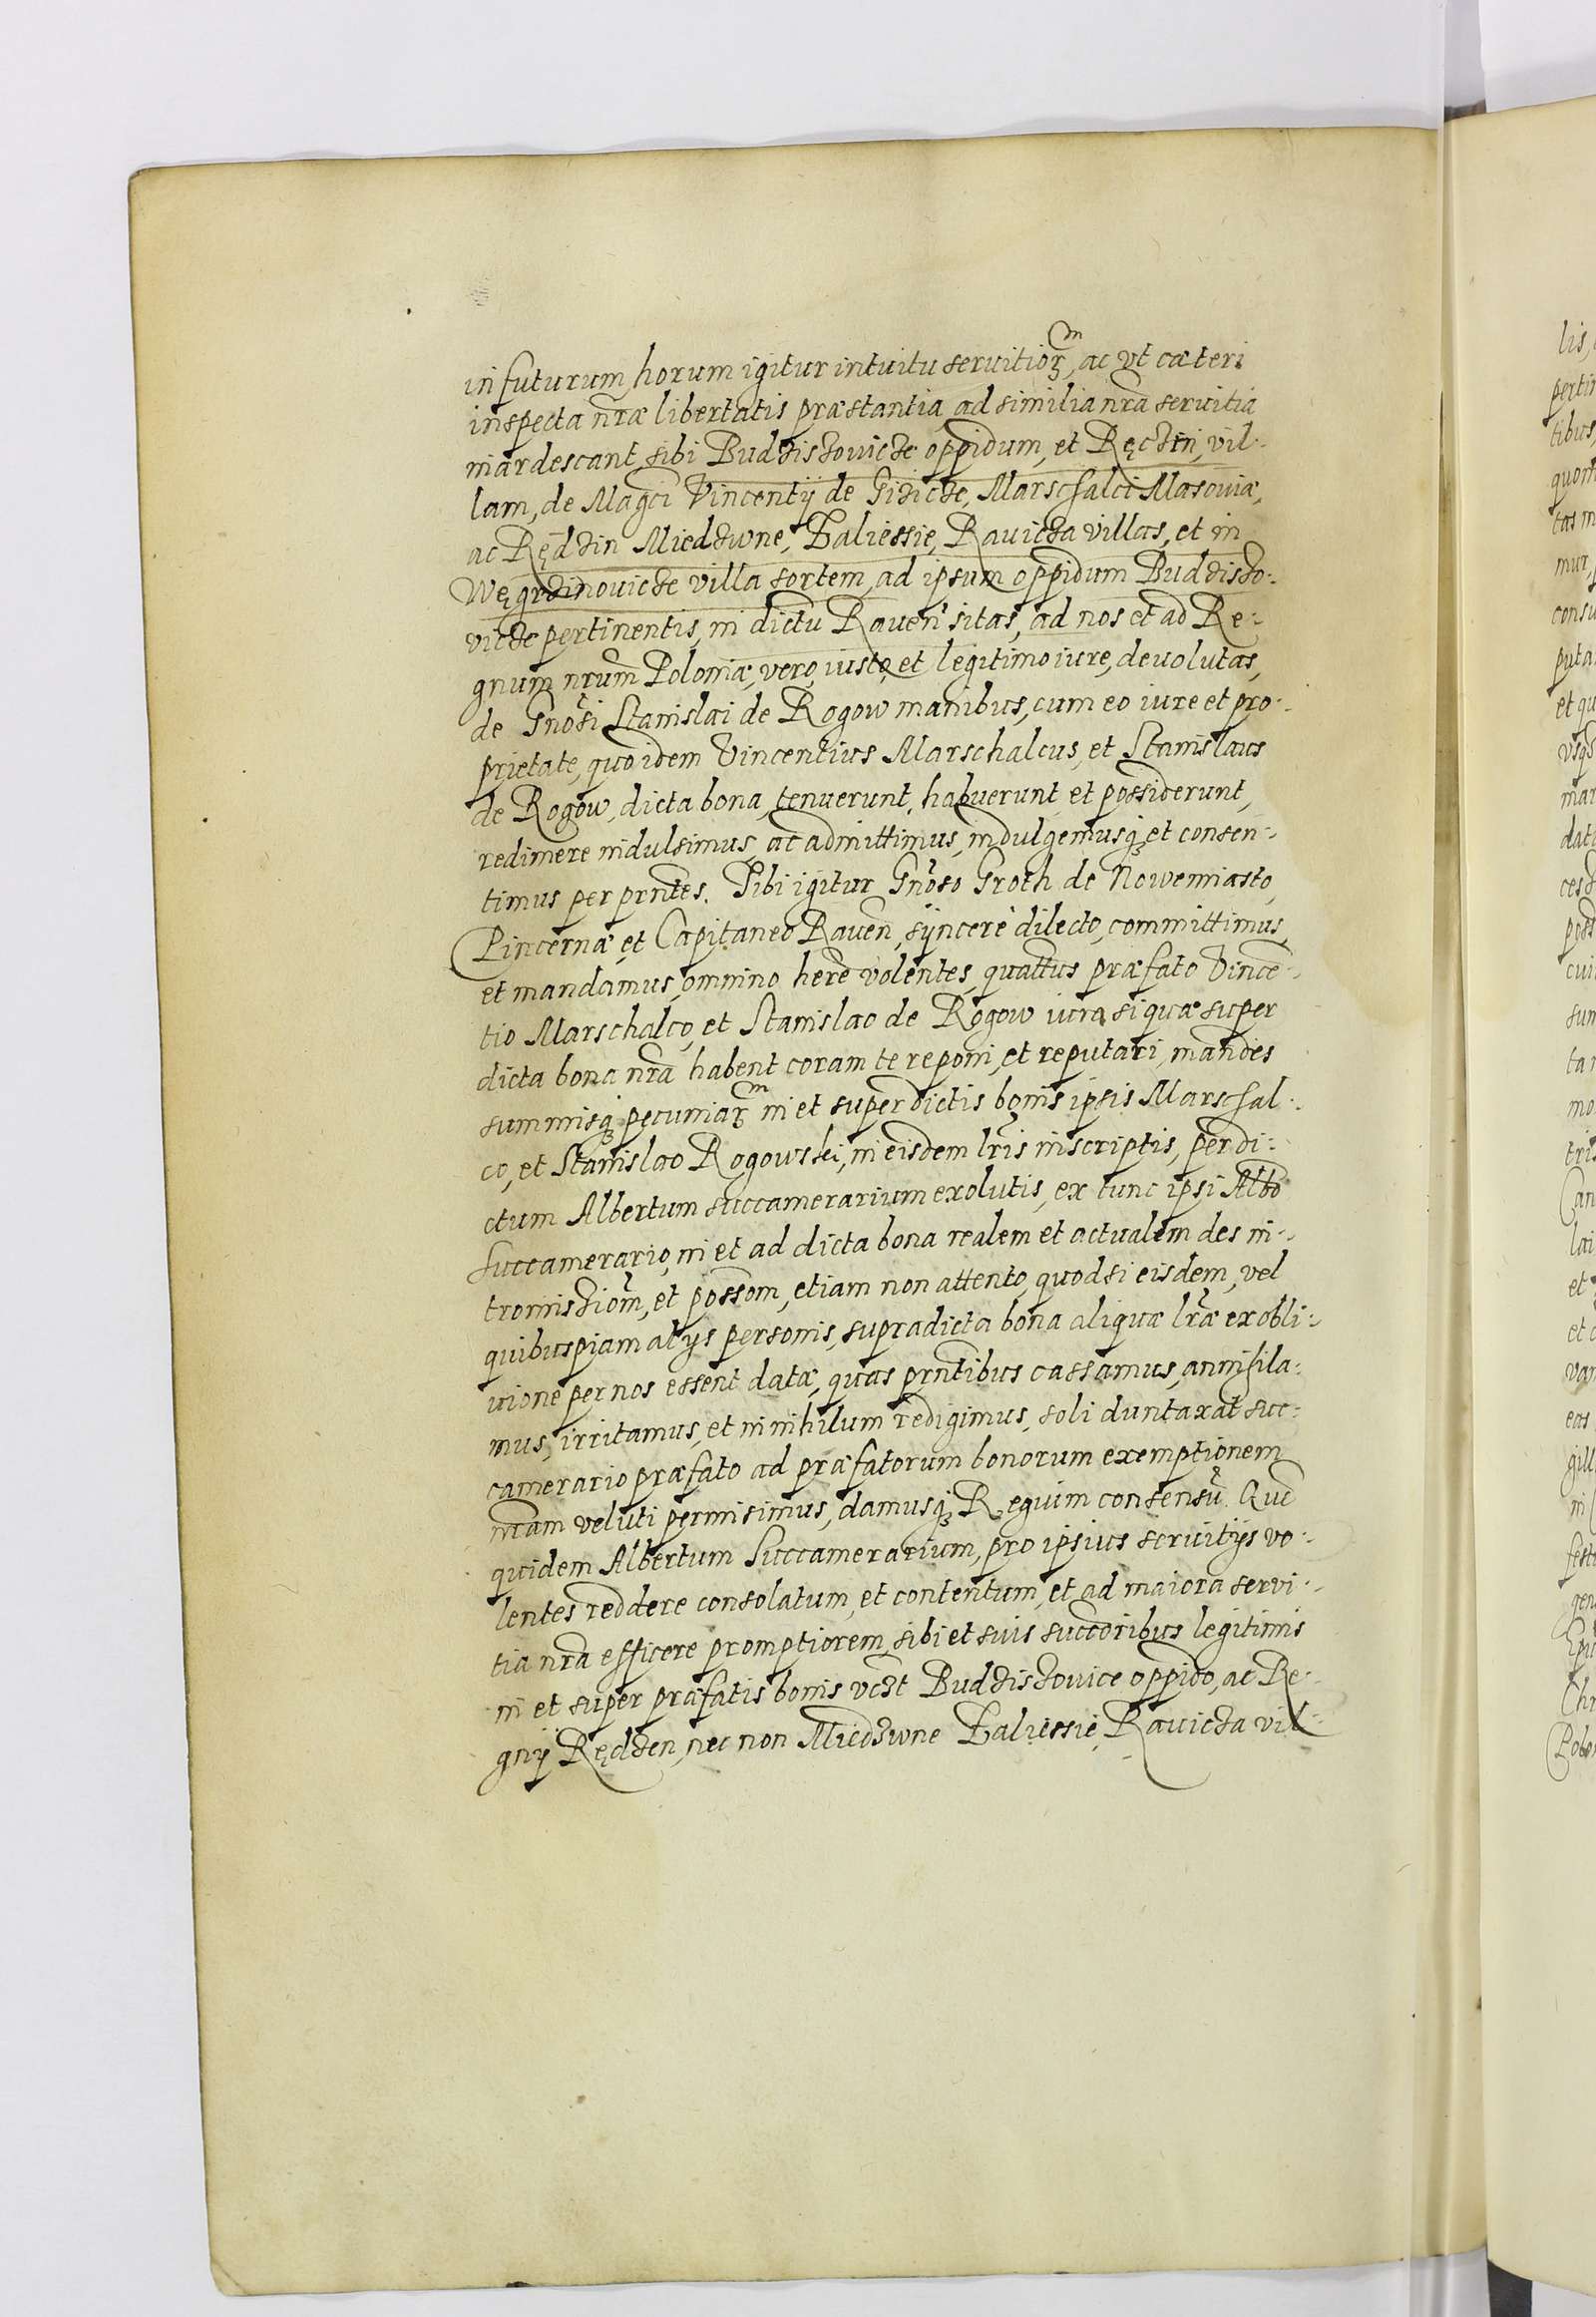 in futurum, horum igitur intuitu seruitioꝝm, ac vt cæteri
inspecta nr̃æ libertatis præstantia ad similia nr̃a seruitia
inardescant, sibi Budziszouicze oppidum, et Ręczin, vil-
lam, de Magci Vincentij de Gizicze, Marschalci Masouiæ,
ac Rędzin Miedzwne, Zaliessie, Rauicza villas, et in
Węgrzinouicze villa sortem, ad ipsum oppidum Budziszo-
uicze pertinentis, in dictu Rauen̄ sitas, ad nos et ad Re-
gnum nr̃um Poloniæ, vero, iusto, et legitimo iure, deuolutas,
de Gnosi Stanislai de Rogow manibus, cum eo iure et pro-
prietate, quo idem Vincentius Marschalcus, et Stanislaus
de Rogow, dicta bona, tenuerunt, habuerunt et possiderunt,
redimere indulsimus, ac admittimus, indulgemusq; et consen-
timus per prñtes. Tibi igitur Gnoso Groth de Nowemiasto,
Pincernæ et Capitaneo Rauen̄, sÿncerè dilecto, committimus,
et mandamus, omnino herẽ volentes, quattus præfato Vincẽ-
tio Marschalco, et Stanislao de Rogow iura si quæ super
dicta bona nr̃a habent coram te reponi, et reputari, mandes
summisq; pecuniaꝝm in et super dictis bonis ipsis Marschal-
co, et Stanislao Rogowski, in eisdem lr̃is inscriptis, per di-
ctum Albertum succamerarium exolutis, ex tunc ipsi Albõ
Succamerario, in et ad dicta bona realem et actualem des in-
tromissiom̃, et possom̃, etiam non attento, quod si eisdem, vel
quibuspiam alijs personis, supradicta bona aliquæ lr̃æ ex obli-
uione per nos essent datæ, quas prñtibus cassamus, annihila-
mus, irritamus, et in nihilum redigimus, soli duntaxat suc-
camerario præfato ad præfatorum bonorum exemptionem
nr̃am veluti permisimus, damusq; Regium consensũ. Quẽ
quidem Albertum Succamerarium, pro ipsius seruitijs vo-
lentes reddere consolatum, et contentum, et ad maiora serui-
tia nr̃a efficere promptiorem, sibi et suis succoribus legitimis
in et super præfatis bonis vczt Budziszouice oppido, ac Re-
gnij Rędzen, nec non Miedzwne Zaliessie, Rauicza vil-